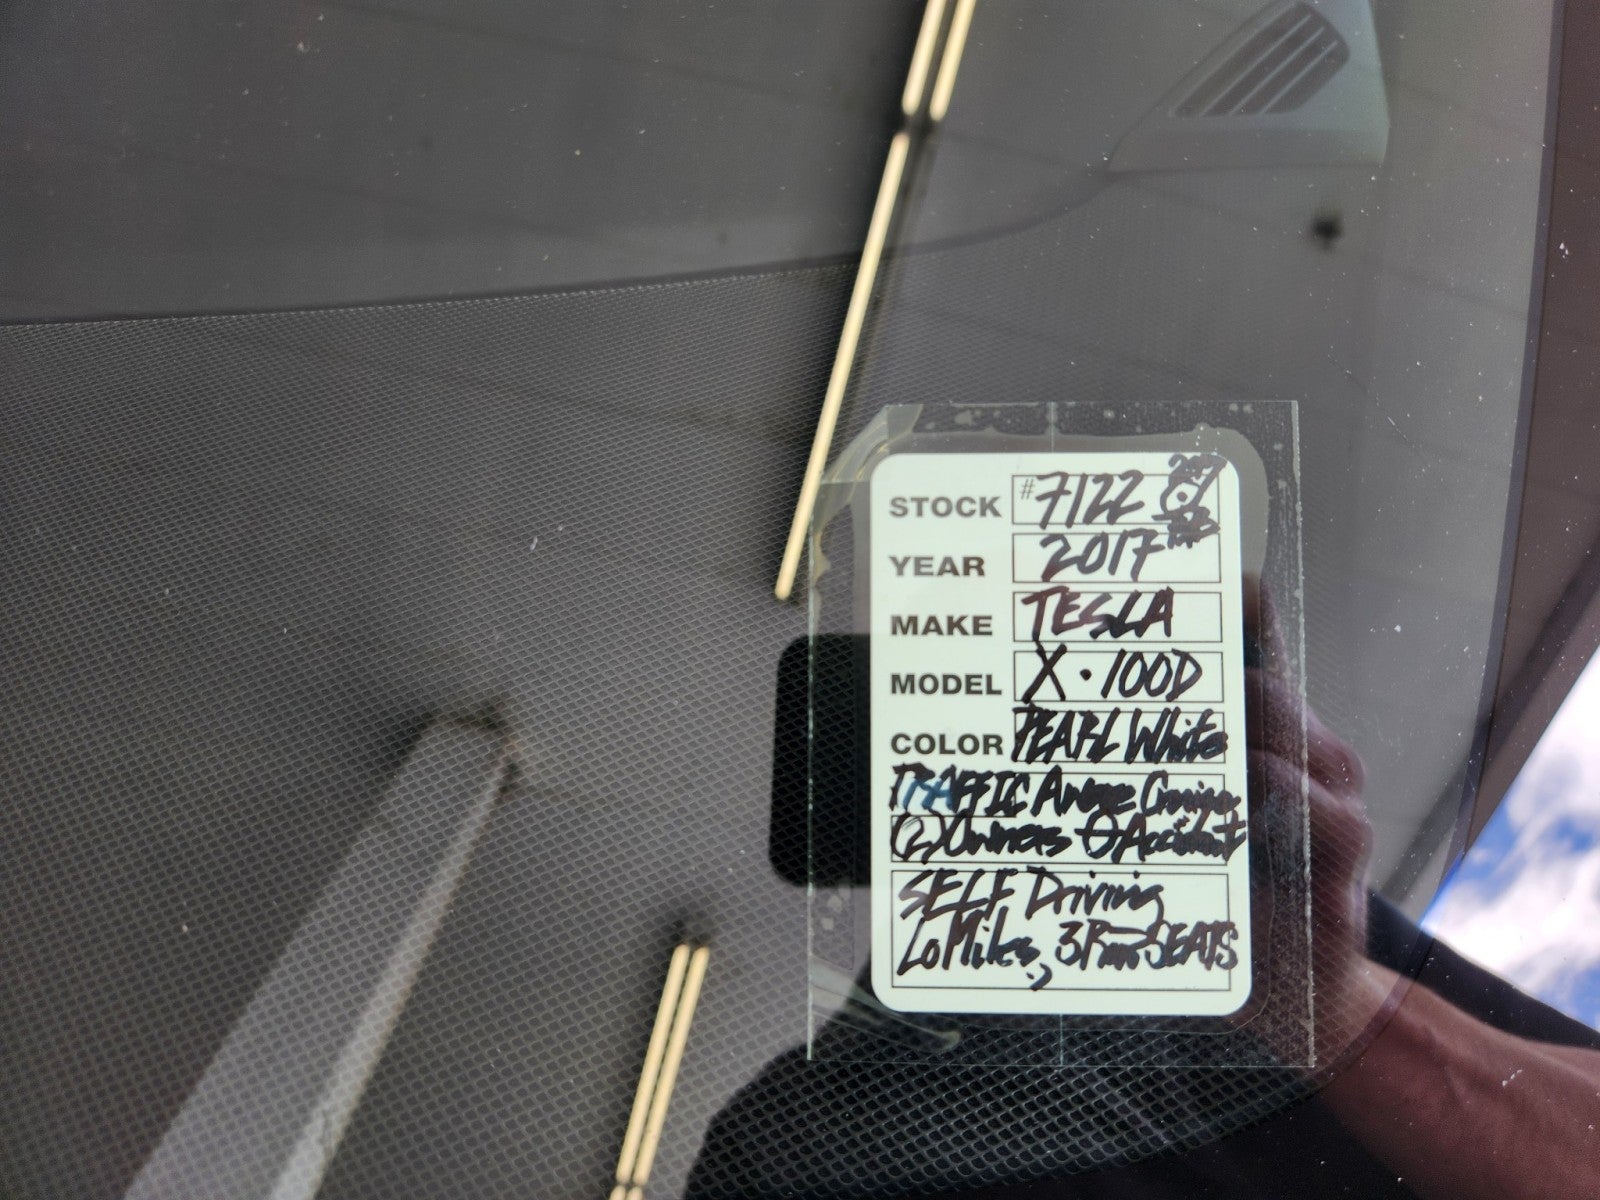 STOCK #7122
YEAR 2017
MAKE TESLA
MODEL X·100D
COLOR PEARL White
TRAFFIC Aware Cruise
(2) Owners 0 Accident
SELF Driving
Lo Miles, 3 Row SEATS
:)